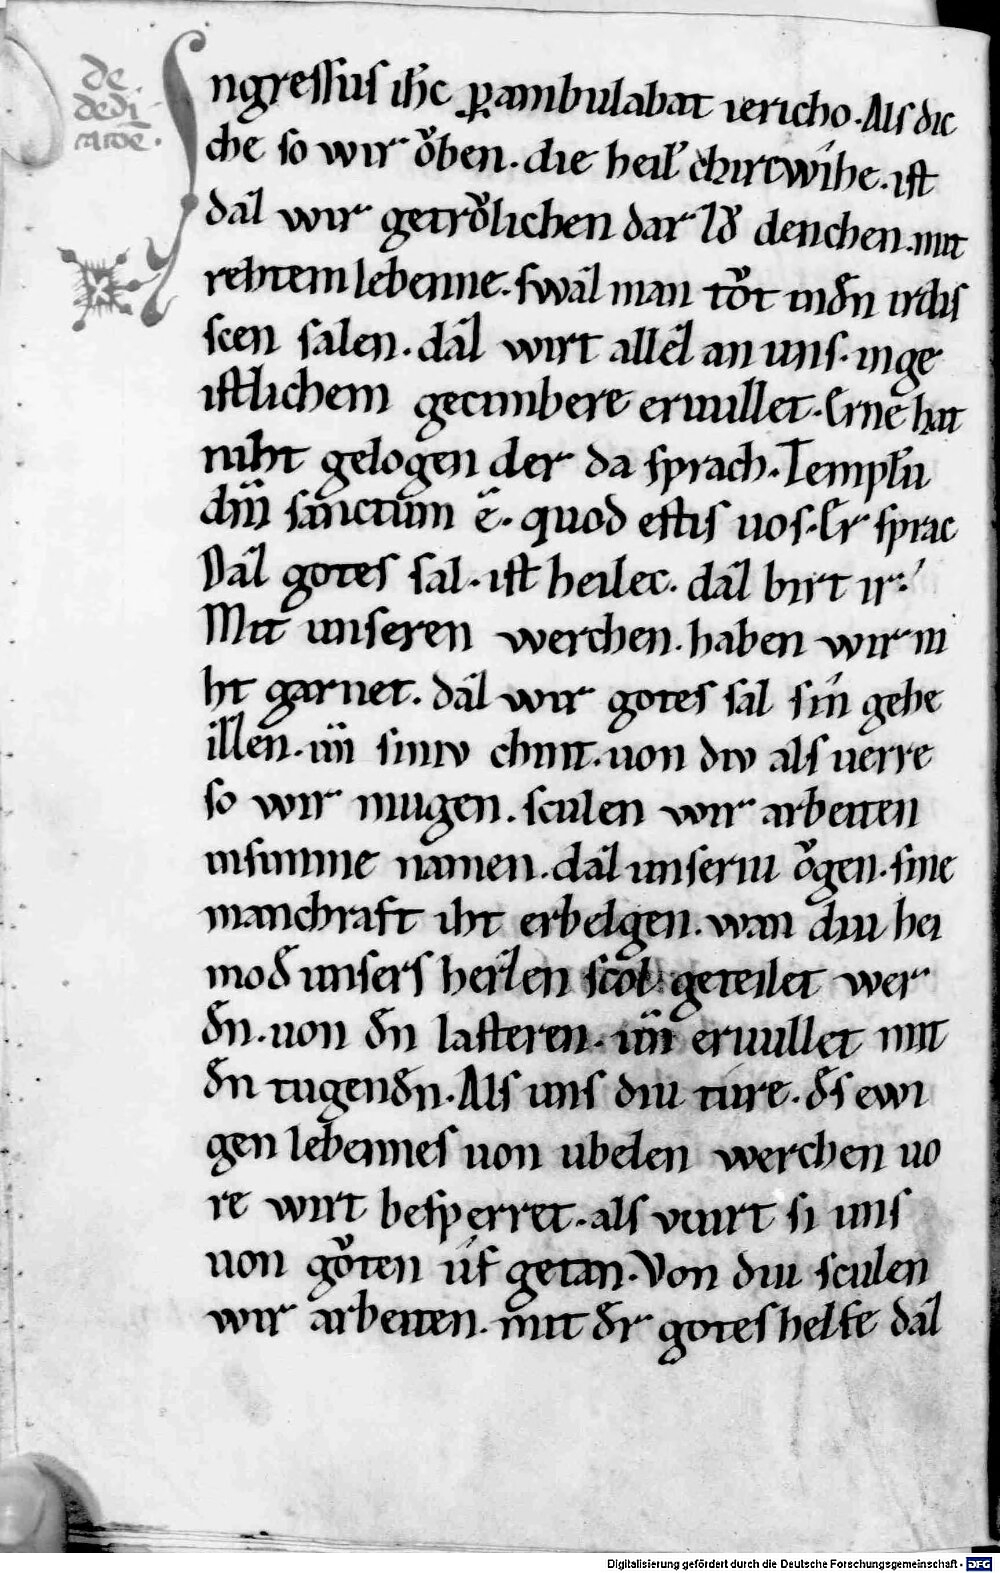 de
dedi
catiōe.
Ingressus ih̄c ꝑambulabat iericho. Als dic
che so wir ǒben. die heil' chircwíhe. ist
däl wir getrǒlichen dar lð denchen. mit
rehtem lebenne. swäl man tǒt in ðn irdis
scen salen. däl wirt allel an uns. in ge
istlichem gecimbere eruullet. Erne hat
niht gelogen der da sprach. Templū
dn̄i sanctum ē. quod estis uos. Er sprac
Däl gotes sal. ist heilec. däl birt ir.
Mit unseren werchen. haben wir ni
ht garnet. däl wir gotes sal sín gehe
illen. un̄ siniv chint. uon div als uerre
so wir mugen. sculen wir arbeiten
in sinme namen. däl unseriu ǒgen. sine
manchraft iht erbelgen. wan diu hei
moð unsers herlen scol geteilet wer
ðn. uon ðn lasteren. un̄ eruullet mit
ðn tugenðn. Als uns diu ture. ðs ewi
gen lebennes uon ubelen werchen uo
re wirt besperret. als wirt si uns
uon gǒten úf getan. Von diu sculen
wir arbeiten. mit ðr gotes helfe däl
Digitalisierung gefördert durch die Deutsche Forschungsgemeinschaft - DFG